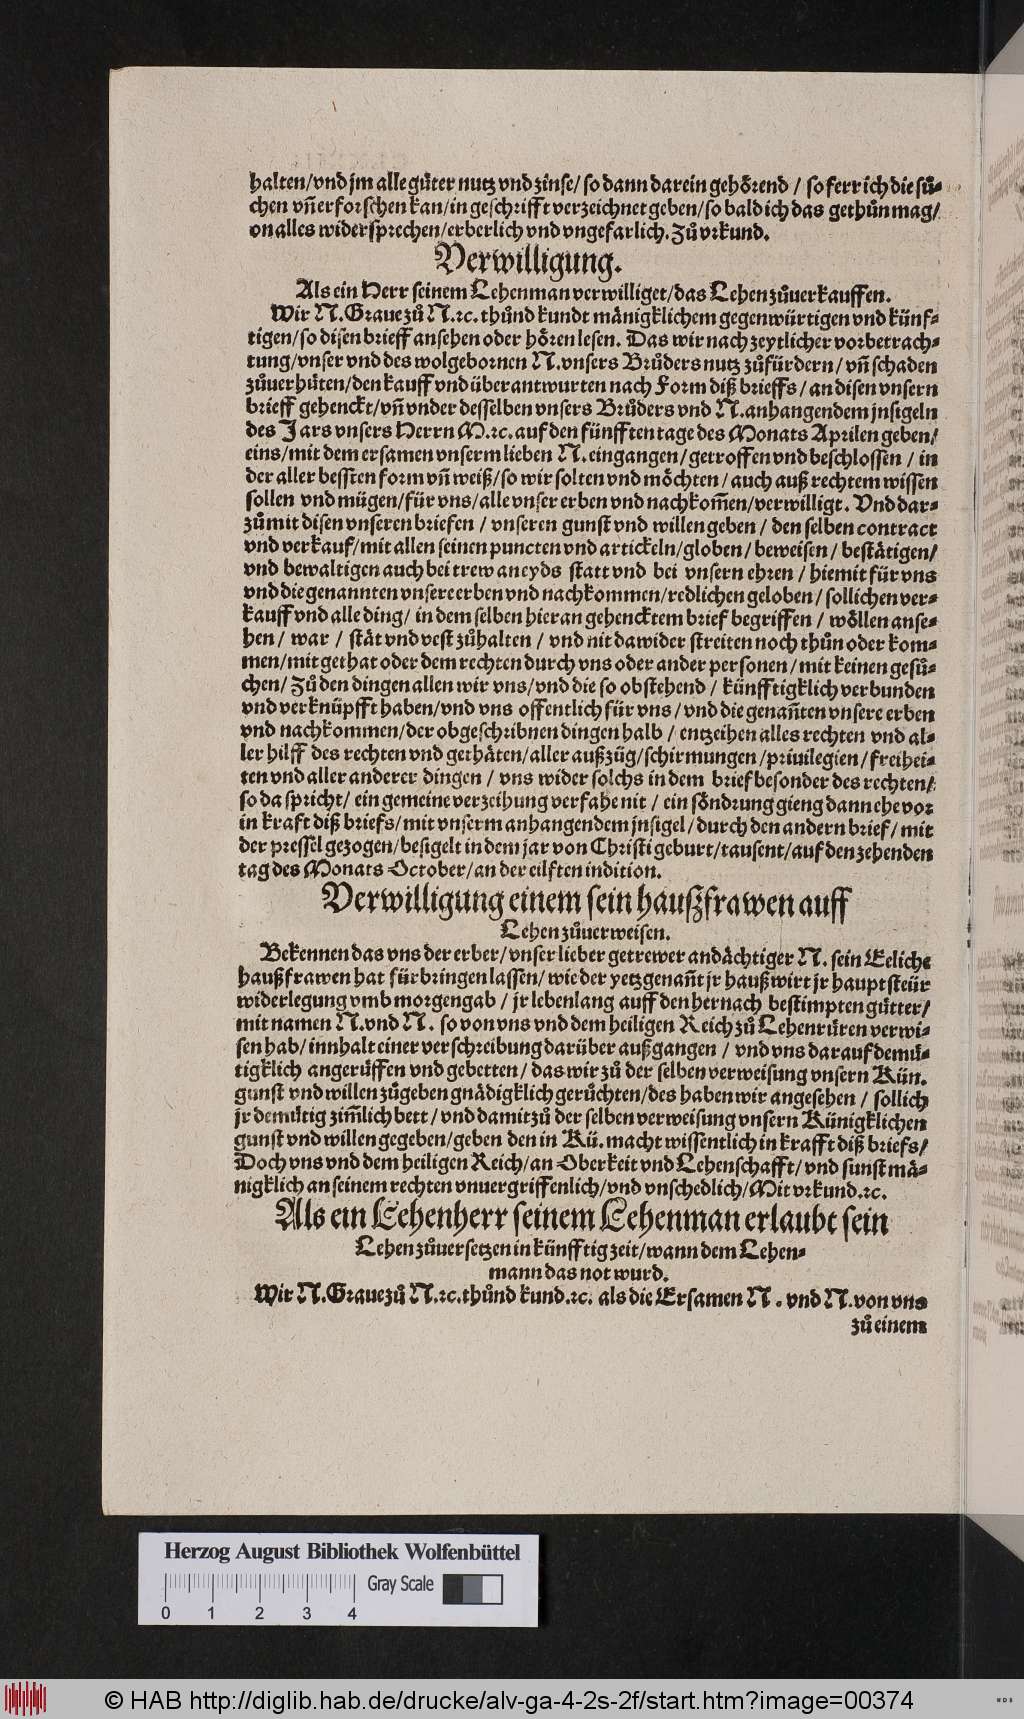 halten/vnd jm alle güter nutz vnd zinse/so dann darein gehörend / so ferr ich die sů-
chen vñ erforschen kan/in geschrifft verzeichnet geben/so bald ich das gethůn mag/
on alles widersprechen/erberlich vnd vngefarlich. Zů vrkund.
Verwilligung.
Als ein Herr seinem Lehenman verwilliget/das Lehen zůuerkauffen.
Wir N. Graue zů N.ꝛc. thůnd kundt mänigklichem gegenwürtigen vnd künf-
tigen/so disen brieff ansehen oder hören lesen. Das wir nach zeytlicher vorbetrach-
tung/vnser vnd des wolgebornen N.vnsers Brůders nutz zůfürdern/vñ schaden
zůuerhüten/den kauff vnd überantwurten nach Form diß brieffs/an disen vnsern
brieff gehenckt/vñ vnder desselben vnsers Brůders vnd N.anhangendem jnsigeln
des Jars vnsers Herrn M.ꝛc. auf den fünfften tage des Monats Aprilen geben/
eins/mit dem ersamen vnserm lieben N. eingangen/getroffen vnd beschlossen / in
der aller bessten form vñ weiß/so wir solten vnd möchten/auch auß rechtem wissen
sollen vnd mügen/für vns/alle vnser erben vnd nachkom̃en/verwilligt. Vnd dar-
zů mit disen vnseren briefen / vnseren gunst vnd willen geben / den selben contract
vnd verkauf/mit allen seinen puncten vnd artickeln/globen/ beweisen/ bestätigen/
vnd bewaltigen auch bei trew an eyds statt vnd bei vnsern ehren / hiemit für vns
vnd die genannten vnsere erben vnd nachkommen/redlichen geloben/ sollichen ver-
kauff vnd alle ding/ in dem selben hieran gehencktem brief begriffen / wöllen anse-
hen/ war / stät vnd vest zůhalten / vnd nit dawider streiten noch thůn oder kom-
men/mit gethat oder dem rechten durch vns oder ander personen/mit keinen gesů-
chen/ Zů den dingen allen wir vns/vnd die so obstehend / künfftigklich verbunden
vnd verknüpfft haben/vnd vns offentlich für vns/vnd die genañten vnsere erben
vnd nachkommen/der obgeschribnen dingen halb / entzeihen alles rechten vnd al-
ler hilff des rechten vnd gethäten/aller außzüg/schirmungen/priuilegien/freihei-
ten vnd aller anderer dingen / vns wider solchs in dem brief besonder des rechten/
so da spricht/ ein gemeine verzeihung verfahe nit / ein söndrung gieng dann ehe vor
in kraft diß briefs/mit vnserm anhangendem jnsigel/durch den andern brief/ mit
der pressel gezogen/besigelt in dem jar von Christi geburt/tausent/auf den zehenden
tag des Monats October/an der eilften indition.
Verwilligung einem sein haußfrawen auff
Lehen zůuerweisen.
Bekennen das vns der erber/vnser lieber getrewer andächtiger N. sein Eeliche
haußfrawen hat fürbringen lassen/ wie der yetzgenañt jr haußwirt jr hauptsteür
widerlegung vmb morgengab / jr lebenlang auff den hernach bestimpten gütter/
mit namen N.vnd N. so von vns vnd dem heiligen Reich zů Lehen rüren verwi-
sen hab/ innhalt einer verschreibung darüber außgangen / vnd vns darauf demü-
tigklich angerüffen vnd gebetten/ das wir zů der selben verweisung vnsern Kün.
gunst vnd willen zůgeben gnädigklich gerůchten/des haben wir angesehen / sollich
jr demütig zim̃lich bett/ vnd damit zů der selben verweisung vnsern Künigklichen
gunst vnd willen gegeben/geben den in Kü.macht wissentlich in krafft diß briefs/
Doch vns vnd dem heiligen Reich/an Oberkeit vnd Lehenschafft/vnd sunst mä-
nigklich an seinem rechten vnuergriffenlich/vnd vnschedlich/Mit vrkund.ꝛc.
Als ein Lehenherr seinem Lehenman erlaubt sein
Lehen zůuersetzen in künfftig zeit/wann dem Lehen-
mann das not wurd.
Wir N.Graue zů N.ꝛc.thůnd kund.ꝛc. als die Ersamen N. vnd N.von vns
zů einem
Herzog August Bibliothek Wolfenbüttel
Gray Scale
0 1 2 3 4
© HAB http://diglib.hab.de/drucke/alv-ga-4-2s-2f/start.htm?image=00374
WDB